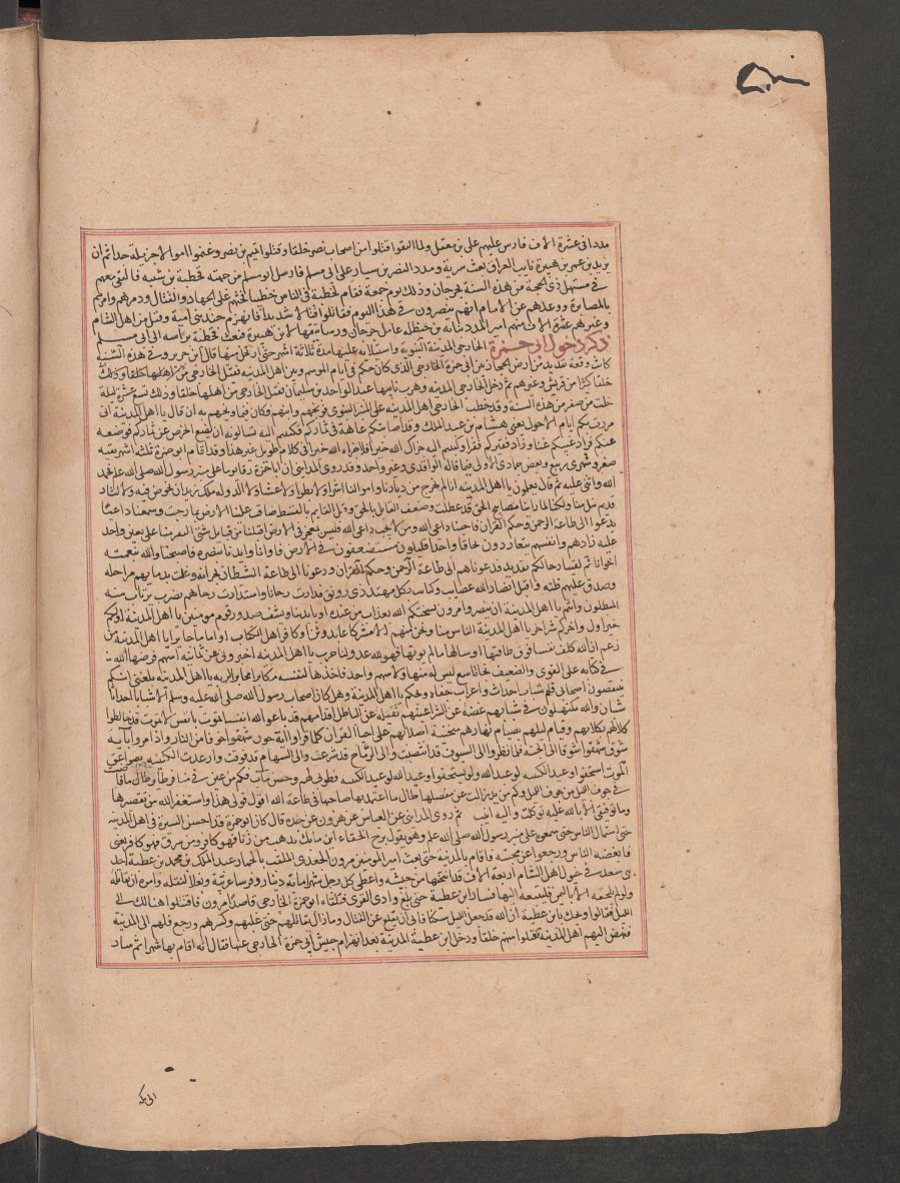 مددا في عشرة الاف فارس عليهم علي بن معقل ولما التقوا قتلوا من اصحاب نصر خلقا وقتلوا تميم بن نصر وغنموا اموالا جزيلة جدا ثم ان
يزيد بن عمر بن هبيرة نايب العراق بعث سرية ومدد النصر بن سيار على ابي مسلم فارسل ابو مسلم من جهته قحطبة بن شبيب فالتقى معهم
في مستهل ذي الحجة من هذه السنة بجرجان وذلك يوم جمعة فقام قحطبة في الناس خطيبا فحثهم على الجهاد والقتال وذمرهم وامرهم
بالمصابرة ووعدهم عن الامام انهم ينصرون في هذا اليوم فقاتلوا قتالا شديدا فانهزم جند بني امية وقتل من اهل الشام
وغيرهم عشرة الاف منهم امير المدد نباته بن حنظلة عامل جرجان ورساتيقها لابن هبيرة فبعث قحطبة براسه الى ابي مسلم
ذكر دخول ابي حمزة الخارجي المدينة النبوية واستيلائه عليها مدة ثلاثة اشهر حتى ارتحل منها قال ابن جرير وفي هذه السنة
كانت وقعة بقديد من ارض الحجاز بين ابي حمزة الخارجي الذي كان حكم في ايام الموسم وبين اهل المدينة فقتل الخارجي من اهلها خلقا وذلك
خلقا كثيرا من قريش وغيرهم ثم دخل الخارجي المدينة وهرب نايبها عبد الواحد بن سليمان فقتل الخارجي من اهلها خلقا وذلك لتسع عشرة ليلة
خلت من صفر من هذه السنة وقد خطب الخارجي اهل المدينة على المنبر النبوي فوبخهم وانبهم فكان فيما وبخهم به ان قال يا اهل المدينة اني
مررت بكم ايام الاحول يعني هشام بن عبد الملك وقد اصابتكم عاهة في ثماركم فكتبتم اليه تسالونه ان يضع الخرص عن ثماركم فوضعه
عنكم فزاد غنيكم غنا وزاد فقيركم فقرا وكتبتم اليه جزاك الله خيرا فلا جزاه الله خيرا في كلام طويل غير هذا وقد اقام ابو حمزة ثلاثة اشهر بقية
صفر وشهري ربيع وبعض جمادى الاولى فيما قاله الواقدي وغير واحد وقد روى المدايني ان ابا حمزة رقا يوما على منبر رسول الله صلى الله عليه فحمد
الله واثنى عليه ثم قال تعلمون يا اهل المدينة انا لم نخرج من ديارنا واموالنا اشرا ولا بطرا ولا عبثا ولا لدولة ملك نريد ان نخوض فيه ولا لثار
قديم نيل منا ولكنا لما راينا مصابيح الحق قد عطلت وضعف القايل بالحق وقتل القايم بالقسط ضاقت علينا الارض بما رحبت وسمعنا داعيا
يدعوا الى طاعة الرحمن وحكم القران فاجبنا داعي الله ومن لا يجب داعي الله فليس بمعجز في الارض اقبلنا من قبايل شتى النفر منا على بعير واحد
عليه زادهم وانفسهم يتعاورون لحافا واحدا قليلون مستضعفون في الارض فاوانا وايدنا بنصره فاصبحنا والله بنعمته
اخوانا ثم لقينا رجالكم بقديد فدعوناهم الى طاعة الرحمن وحكم القران ودعونا الى طاعة الشيطان
وصدق عليهم ظنه واقبل انصار الله عصايب وكتايب بكل مهند ذي رونق فدارت رحانا واستدارت رحاهم بضرب يرتاب منه
المبطلون وانتم يا اهل المدينة ان تنصروا مروان يسحتكم الله بعذاب من عنده او بايدينا ويشف صدور قوم مومنين يا اهل المدينة اولكم
خير اول واخركم شر اخر يا اهل المدينة الناس منا ونحن منهم الا مشركا عابد وثن او كافر اهل الكتاب او اماما جايرا يا اهل المدينة من
زعم ان الله كلف نفسا فوق طاقتها او سالها ما لم يوتها فهو لله عدو ولنا حرب يا اهل المدينة اخبروني عن ثمانية اسهم فرضها الله
في كتابه على القوي والضعيف فجا تاسع ليس له منها ولا سهم واحد فاخذها لنفسه مكابرا محاربا لربه يا اهل المدينة بلغني انكم
تنتقصون اصحابي قلتم شباب احداث واعراب جفاة ويحكم يا اهل المدينة وهل كان اصحاب رسول الله صلى الله عليه وسلم الا شبابا احداثا
شباب والله مكتهلون في شبابهم غضة عن الشر اعينهم ثقيلة عن الباطل اقدامهم قد باعوا الله انفسا تموت بانفس لا تموت قد خالطوا
كلالهم بكلالهم وقيام ليلهم بصيام نهارهم منحنية اصلابهم على اجزا القران كلما مروا باية خوف شهقوا خوفا من النار واذا مروا باية
شوق شهقوا شوقا الى الجنة فلما نظروا الى السيوف قد انتضيت والى الرماح قد شرعت والى السهام قد فوقت وارعدت الكتيبة بصواعق
الموت استخفوا وعيد الكتيبة لوعيد الله ولم يستخفوا وعيد الله لوعيد الكتيبة فطوبى لهم وحسن ماب فكم من عين في مناقر طاير طال ما فاضت
في جوف الليل من خوف الله وكم من يد زالت عن مفصلها طال ما اعتمد بها صاحبها في طاعة الله اقول قولي هذا واستغفر الله من تقصيرنا
وما توفيقي الا بالله عليه توكلت واليه انيب ثم روى المدايني عن العباس عن هرون عن جده قال كان ابو حمزة قد احسن السيرة في اهل المدينة
حتى استمال الناس حتى سمعوه على منبر رسول الله صلى الله عليه وهو يقول برح الخفاء اين ما بك يذهب من زنا فهو كافر ومن سرق فهو كافر يعني
فابغضه الناس ورجعوا عن محبته فاقام بالمدينة حتى بعث امير المومنين مرون الجعدي الملقب بالحمار عبد الملك بن محمد بن عطية احد
بني سعد في خيول اهل الشام اربعة الاف قد انتخبها من جيشه واعطى كل رجل منهم ماية دينار وفرسا عربية وبغلا لثقله وامره ان يقاتله
ولو لم يلحقه الا باليمن فليتبعه اليها فسار ابن عطية حتى بلغ وادي القرى فتلقاه ابو حمزة الخارجي قاصدا مرون فاقتتلوا هنالك الى
الليل فقالوا ويحك يا ابن عطية ان الله قد جعل الليل سكنا فابى ان يقلع عن القتال وما زال يقاتلهم حتى غلبهم وكسرهم ورجع فلهم الى المدينة
فنهض اليهم اهل المدينة فقتلوا منهم خلقا ودخل ابن عطية المدينة بعد انهزام جيش ابي حمزة الخارجي عنها فقال انه اقام بها شهرا ثم سار
الى مكة